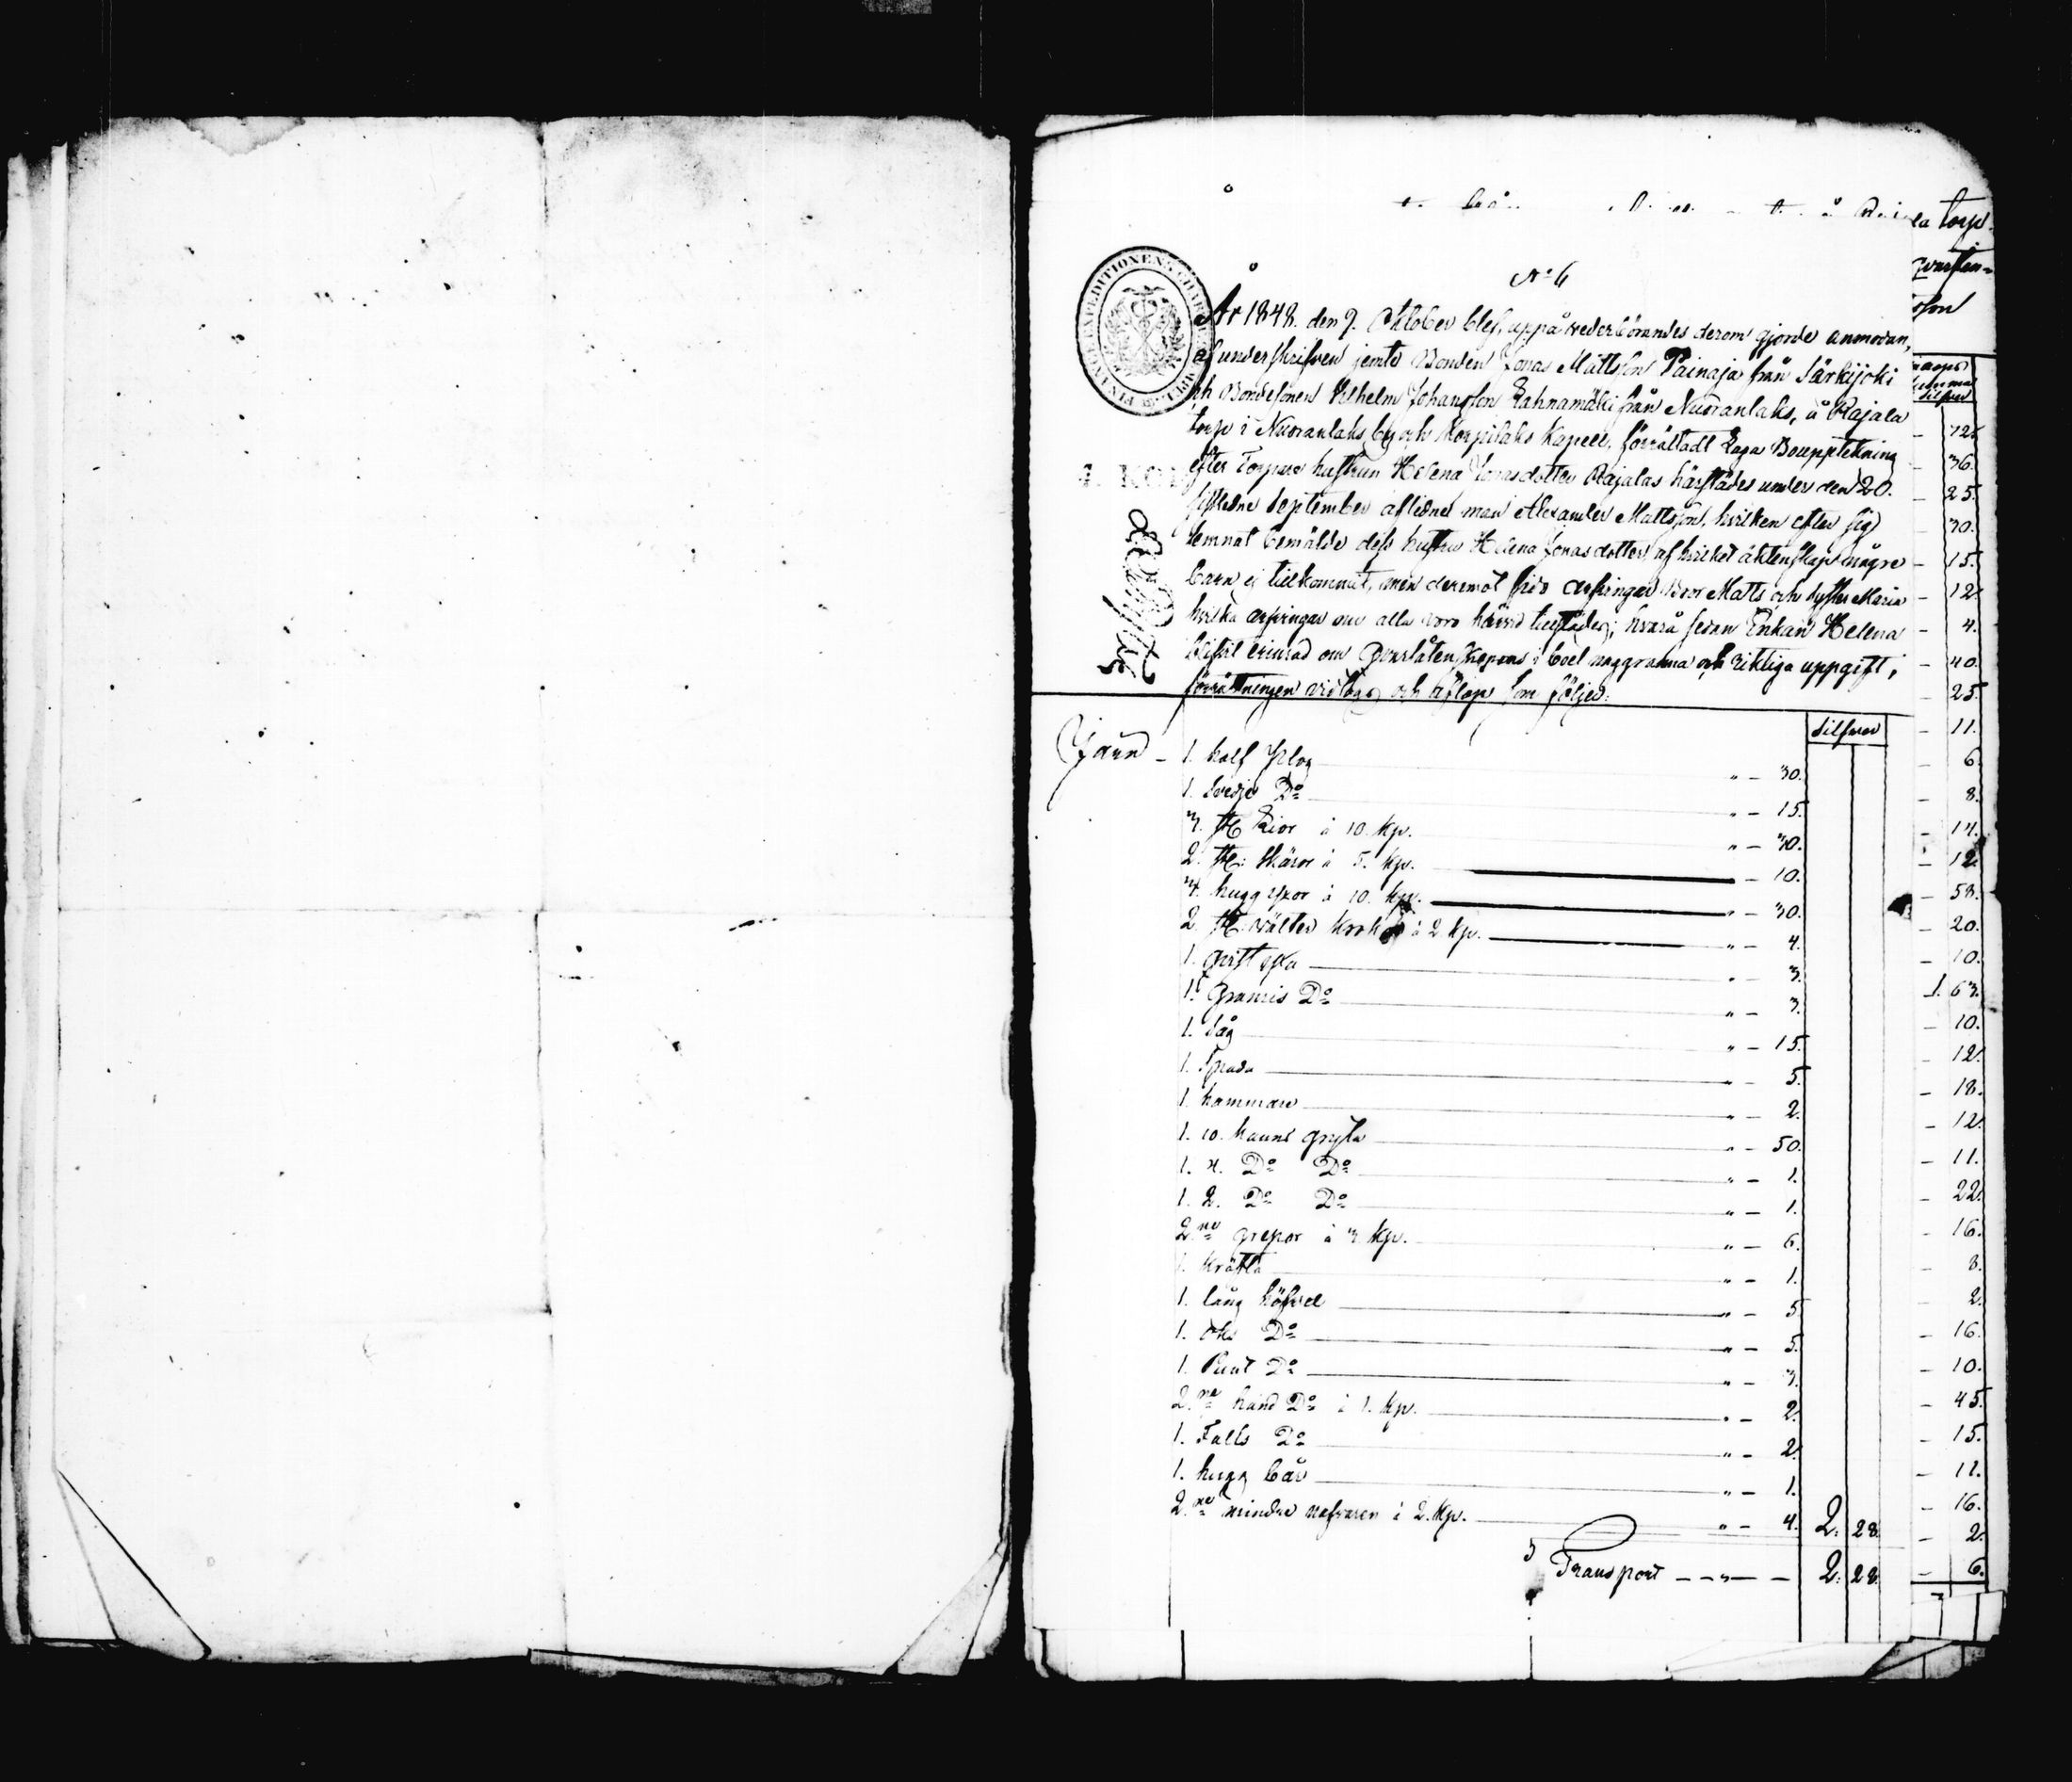 No 6
År 1848. den 9. October blef, uppå vederbörandes derom gjorde anmodan,
af underskrifven jemte Bonden Jonas Mattsson Painaja från Särkijoki
och Bondesonen Wilhelm Johansson Lahnamäki från Nuoranlaks, å Rajala
torp i Nuoranlaks by och Korpilaks Kapell, förrättadt Laga Bouppteckning
efter Torpare hustrun Helena Jonasdotter Rajalas härstädes under den 20.
sistledne September aflidne man Alexander Mattsson, hvilken efter sig
lemnat bemälde dess hustru Helena Jonasdotter, af hvilket äktenskap några
barn ej tillkommit, men deremot arfvingar Bror Matts och syster Maria
hvilka arfvingar nu alla voro härvid tillstädes; hvarå sedan Enkan Helena
blifvit erinrad om qvarlåtenskapens i boet noggranna och riktiga uppgift,
förrättningen vidtogs och aflopp som följer:
Silfver
Järn - 1. half Plog " - 30.
1. Svedje Do " - 15.
3. st. Lior à 10. kp. " - 30.
2. st. Skäror à 5. kp. - 10.
3. hugg yxor à 10. kp. " - 30.
2. st. välter krokar à 2 kp. " - 4.
1. qvist yxa " - 3.
1. granris Do " - 3.
1. Såg " - 15.
1. Spada " - 5.
1. hammare " - 2.
1. 10. kanns gryta " - 50.
1. 4. Do Do " - 1.
1. 2. Do Do " - 1.
2ne grepor à 3 kp. " - 6.
1. kratta " - 1.
1. lång höfvel " - 5.
1. Do " - 5.
1. Runt Do " - 3.
2ne hand Do à 1. kp. " - 2.
1. Falls Do " - 2.
1. hugg bår " - 1.
2ne mindre nafvaren à 2. kp. " - 4. 2. 28.
Transport - - " - - 2. 28.
torp
72.
36.
25.
30.
15.
12.
4.
40.
25.
11.
6.
8.
14.
12.
58.
20.
10.
1. 63.
10.
12.
18.
12.
11.
22.
16.
8.
2.
16.
10.
45.
15.
11.
16.
2.
6.